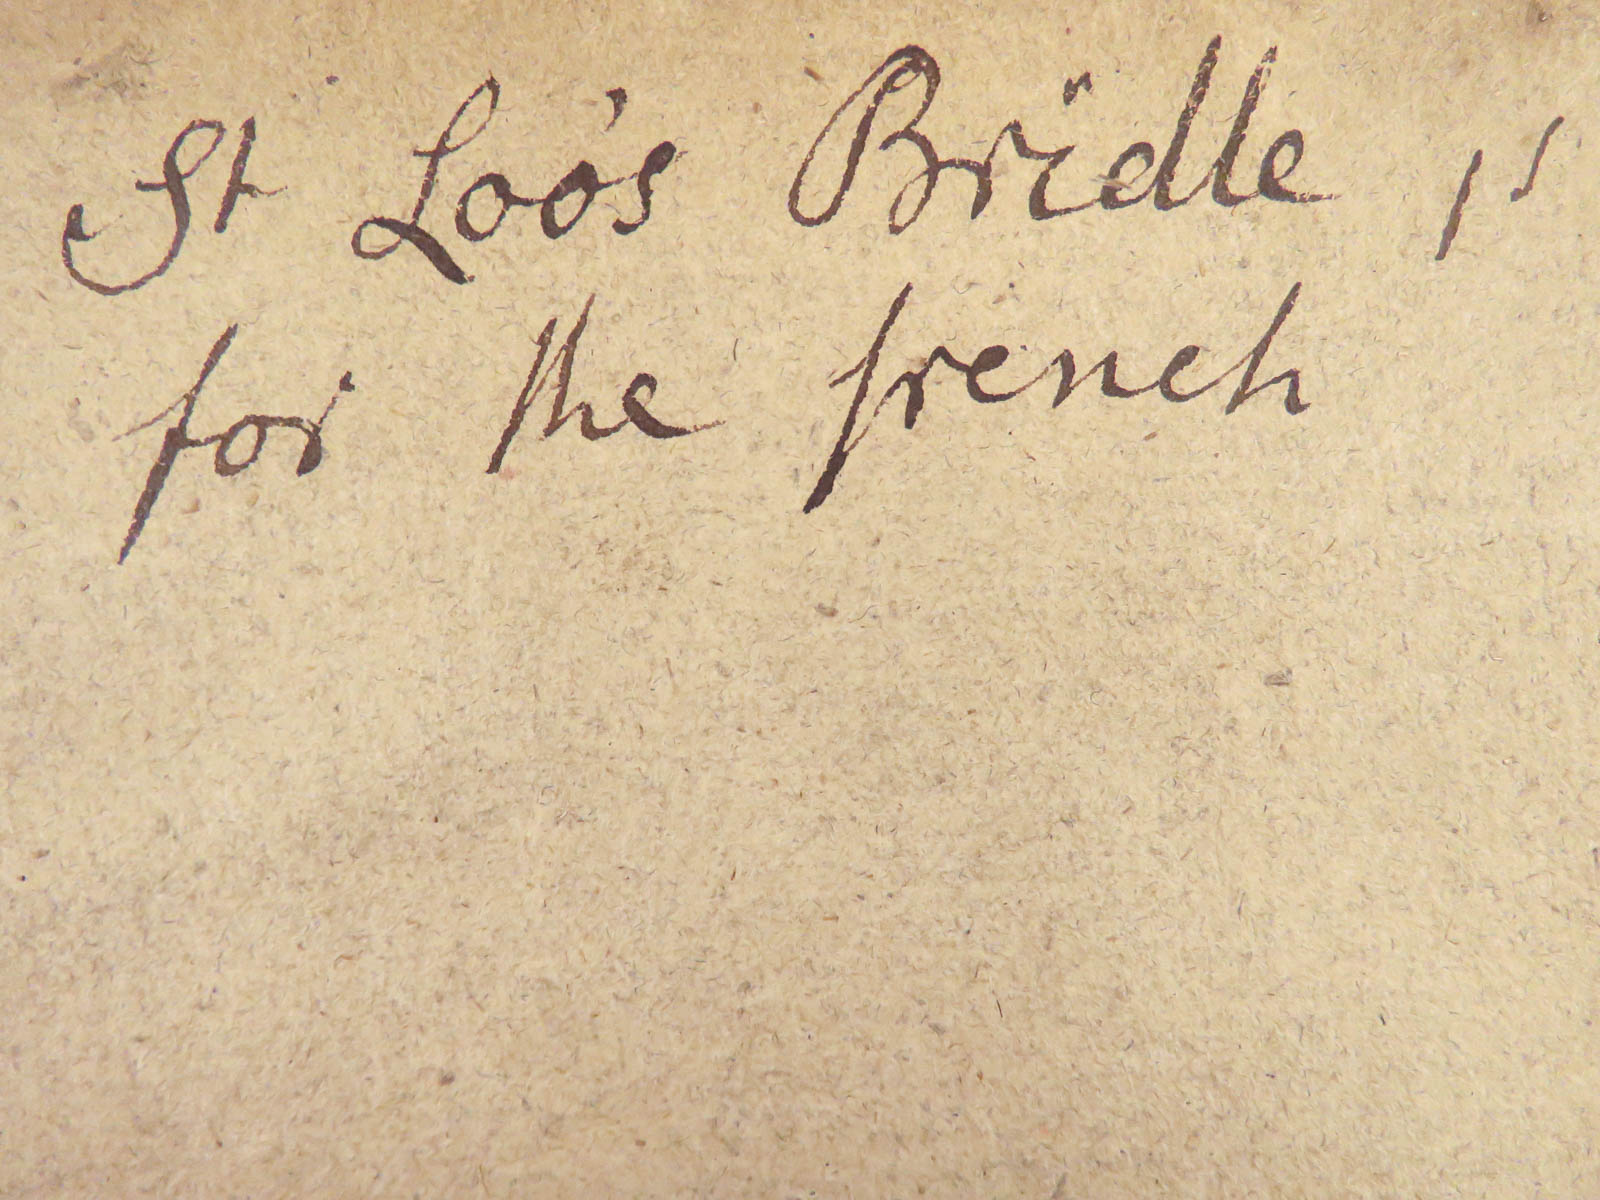 St Loo's Bridle is
for the french